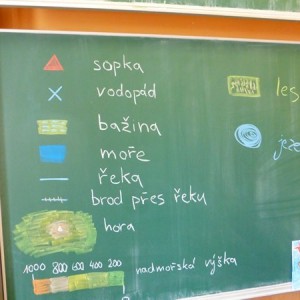 sopka
vodopád
bažina
moře
řeka
brod přes řeku
hora
1000 800 600 400 200
nadmořská výška
les